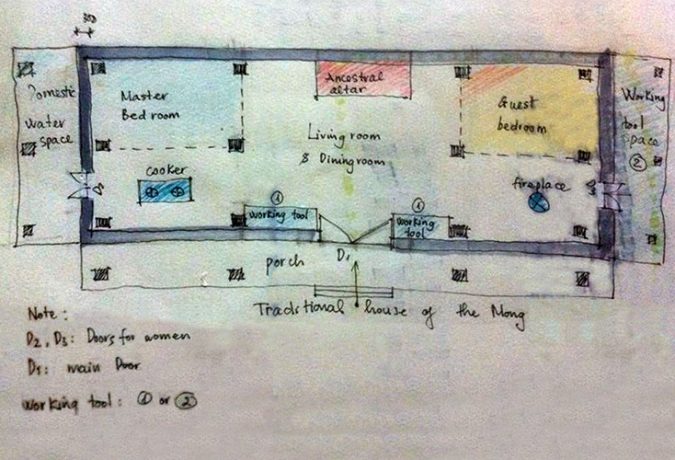 300
Domestic
water
space
Master
Bed room
Ancestral
altar
Guest
bedroom
Working
tool
space
②
Living room
& Dining room
cooker
fireplace
①
working tool
①
working
tool
D₁
porch
Traditional house of the Mong
Note :
D₂, D₃: Doors for women
D₁: main Door
working tool: ① or ②